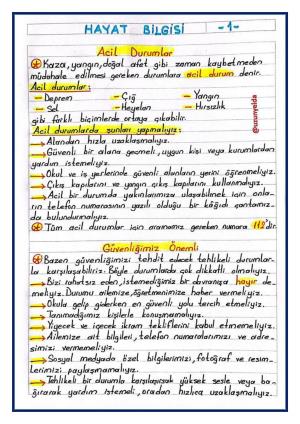 HAYAT BİLGİSİ -1-
Acil Durumlar
Kaza, yangın, doğal afet gibi zaman kaybetmeden
müdahale edilmesi gereken durumlara acil durum denir.
Acil durumlar:
– Deprem – Çığ – Yangın
– Sel – Heyelan – Hırsızlık
gibi farklı biçimlerde ortaya çıkabilir.
Acil durumlarda şunları yapmalıyız:
→ Alandan hızla uzaklaşmalıyız.
→ Güvenli bir alana geçmeli, uygun kişi veya kurumlardan
yardım istemeliyiz.
→ Okul ve iş yerlerinde güvenli alanların yerini öğrenmeliyiz.
→ Çıkış kapılarını ve yangın çıkış kapılarını kullanmalıyız.
→ Acil bir durumda yakınlarımıza ulaşabilmek için onla-
rın telefon numarasının yazılı olduğu bir kâğıdı çantamız-
da bulundurmalıyız.
Tüm acil durumlar için aramamız gereken numara 112'dir.
@unumyelda
Güvenliğimiz Önemli
Bazen güvenliğimizi tehdit edecek tehlikeli durumlar-
la karşılaşabiliriz. Böyle durumlarda çok dikkatli olmalıyız.
→ Bizi rahatsız eden, istemediğimiz bir davranışa hayır de-
meliyiz. Durumu ailemize, öğretmenimize haber vermeliyiz.
→ Okula gelip giderken en güvenli yolu tercih etmeliyiz.
→ Tanımadığımız kişilerle konuşmamalıyız.
→ Yiyecek ve içecek ikram tekliflerini kabul etmemeliyiz.
→ Ailemize ait bilgileri, telefon numaralarımızı ve adre-
simizi vermemeliyiz.
→ Sosyal medyada özel bilgilerimizi, fotoğraf ve resim-
lerimizi paylaşmamalıyız.
→ Tehlikeli bir durumla karşılaşırsak yüksek sesle veya ba-
ğırarak yardım istemeli, oradan hızlıca uzaklaşmalıyız.